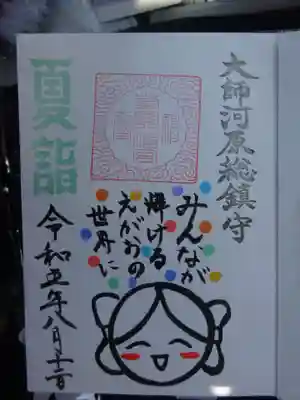 大師河原総鎮守
みんなが
輝ける
えがおの
世界に
夏詣
令和五年八月十一日